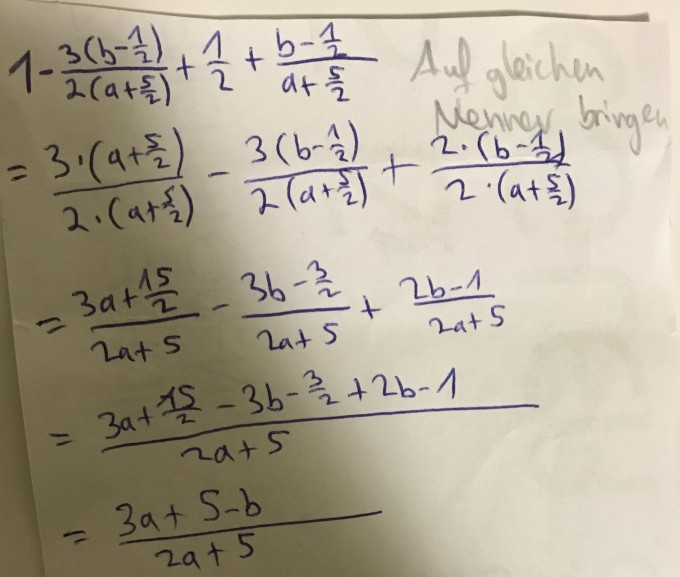 1 - 3(b-1/2)/2(a+5/2) + 1/2 + b-1/2/a+5/2 Auf gleichen Nenner bringen
= 3·(a+5/2)/2·(a+5/2) - 3(b-1/2)/2(a+5/2) + 2·(b-1/2)/2·(a+5/2)
= 3a+15/2/2a+5 - 3b-3/2/2a+5 + 2b-1/2a+5
= 3a+15/2-3b-3/2+2b-1/2a+5
= 3a+5-b/2a+5